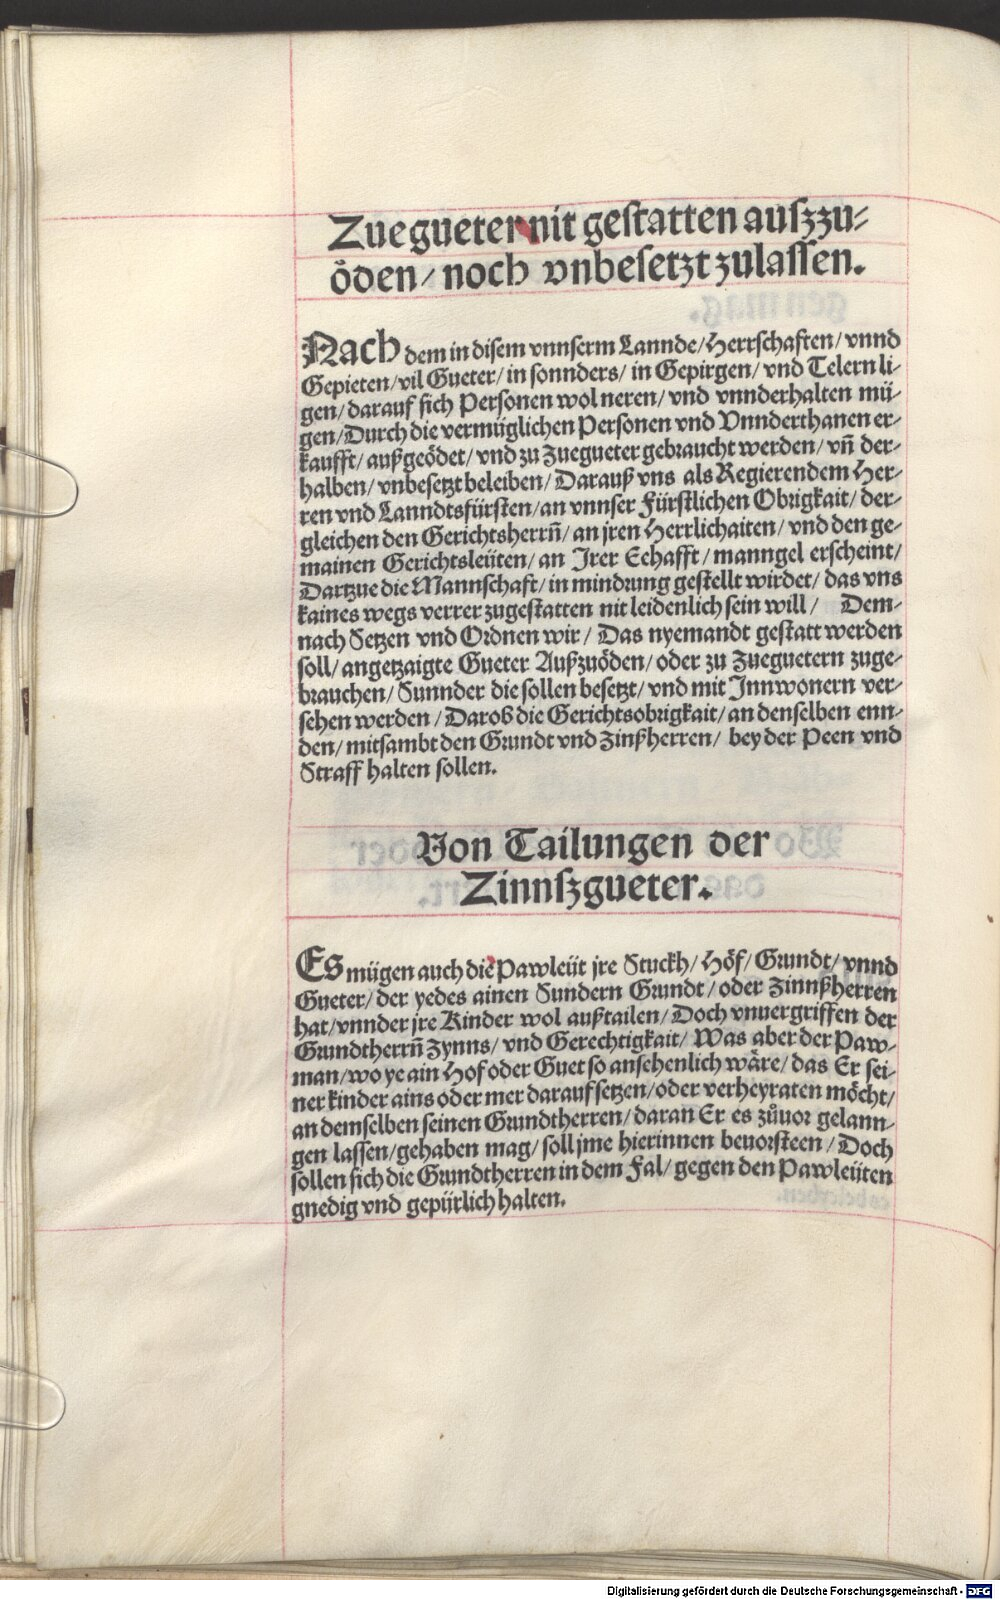 Zuegueter nit gestatten auszzu-
öden/ noch vnbesetzt zulassen.
Nach dem in disem vnnserm Lannde/ Herrschaften/ vnnd
Gepieten/ vil Gueter/ in sonnders/ in Gepirgen/ vnd Telern li-
gen/ darauf sich Personen wol neren/ vnd vnnderhalten mü-
gen/ Durch die vermüglichen Personen vnd Vnnderthanen er-
kaufft/ außgeödet/ vnd zu Zuegueter gebraucht werden/ vñ der-
halben/ vnbesetzt beleiben/ Darauß vns als Regierendem Her-
ren vnd Lanndtsfürsten/ an vnnser Fürstlichen Obrigkait/ der-
gleichen den Gerichtsherrñ/ an jren Herrlichaiten/ vnd den ge-
mainen Gerichtsleüten/ an Irer Schafft/ manngel erscheint/
Dartzue die Mannschaft/ in mindrung gestellt wirdet/ das vns
kaines wegs verrer zugestatten nit leidenlich sein will/ Dem-
nach Setzen vnd Ordnen wir/ Das nyemandt gestatt werden
soll/ angetzaigte Gueter Außzuöden/ oder zu Zueguetern zuge-
brauchen/ Sunnder die sollen besetzt/ vnd mit Innwonern ver-
sehen werden/ Darob die Gerichtsobrigkait/ an denselben enn-
den/ mitsambt den Grundt vnd Zinßherren/ bey der Peen vnd
Straff halten sollen.
Von Tailungen der
Zinnszgueter.
Es mügen auch die Pawleüt jre Stuckh/ Höf/ Grundt/ vnnd
Gueter/ der yedes ainen Sundern Grundt/ oder Zinnßherren
hat/ vnnder jre Kinder wol außtailen/ Doch vnuergriffen der
Grundtherrñ Zynns/ vnd Gerechtigkait/ Was aber der Paw-
man/ wo ye ain Hof oder Guet so ansehenlich wäre/ das Er sei-
ner kinder ains oder mer darauf setzen/ oder verheyraten möcht/
an demselben seinen Grundtherren/ daran Er es zůuor gelann-
gen lassen/ gehaben mag/ soll jme hierinnen beuorsteen/ Doch
sollen sich die Grundtherren in dem Fal/ gegen den Pawleüten
gnedig vnd gepürlich halten.
Digitalisierung gefördert durch die Deutsche Forschungsgemeinschaft - DFG